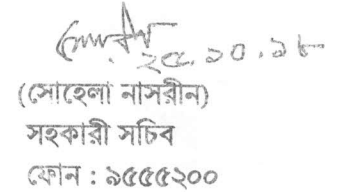 ২৫.১০.১৮
(সোহেলা নাসরীন)
সহকারী সচিব
ফোন : ৯৫৫৫২০০